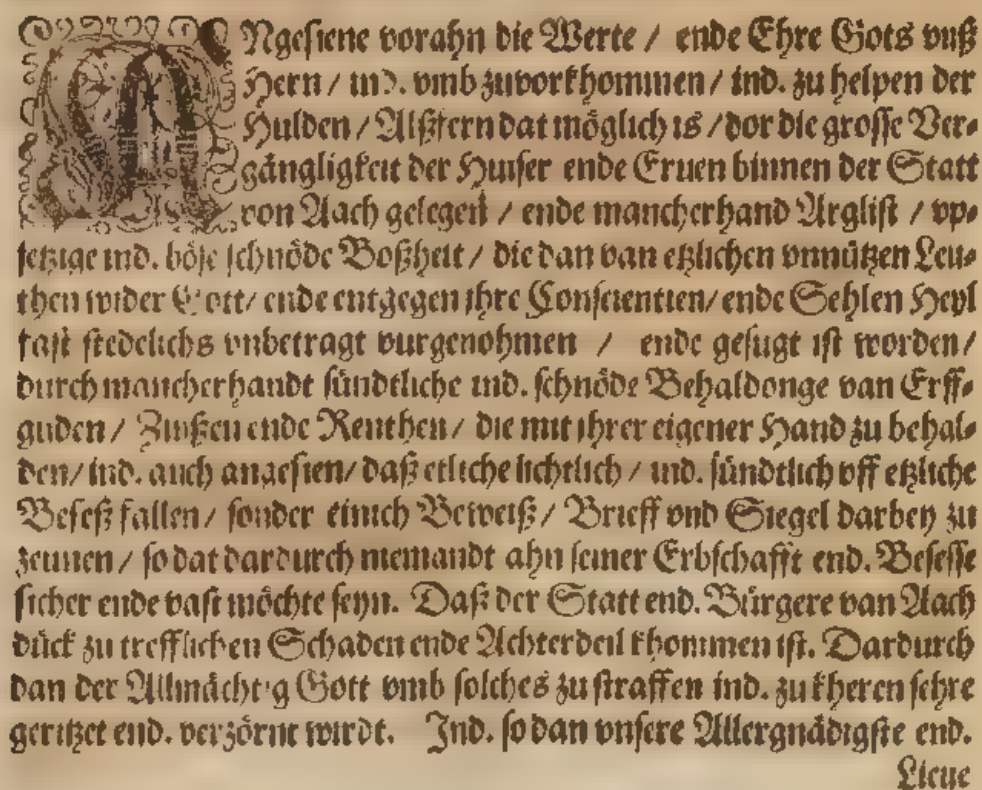 ANgesiene vorahn die Werte / ende Ehre Gots vnß
Hern / ind. vmb zuvorkhommen / ind. zu helpen der
Hulden / Alßfern dat möglich is / dor die grosse Ver-
gängligkeit der Huiser ende Eruen binnen der Statt
von Aach gelegen / ende mancherhand Arglist / vp-
setzige ind. böse schnöde Boßheit / die dan van etzlichen vnnützen Leu-
then wider Gott / ende entgegen ihre Conscientien / ende Sehlen Heyl
fast stedelichs vnbetragt vurgenohmen / ende gefugt ist worden /
durch mancherhandt sündtliche ind. schnöde Behaldonge van Erff-
guden / Zinßen ende Renthen / die mit ihrer eigener Hand zu behal-
den / ind. auch angesien / daß etliche lichtlich / ind. sündtlich vff etzliche
Beseß fallen / sonder einich Beweiß / Brieff vnd Siegel darbey zu
zeunen / so dat dardurch niemandt ahn seiner Erbschafft end. Besesse
sicher ende vast möchte seyn. Daß der Statt end. Bürgere van Aach
dück zu trefflichen Schaden ende Achterdeil khommen ist. Dardurch
dan der Allmächtig Gott vmb solches zu straffen ind. zu kheren sehre
geritzet end. verzörnt wirdt. Ind. so dan vnsere Allergnädigste end.
Lieue